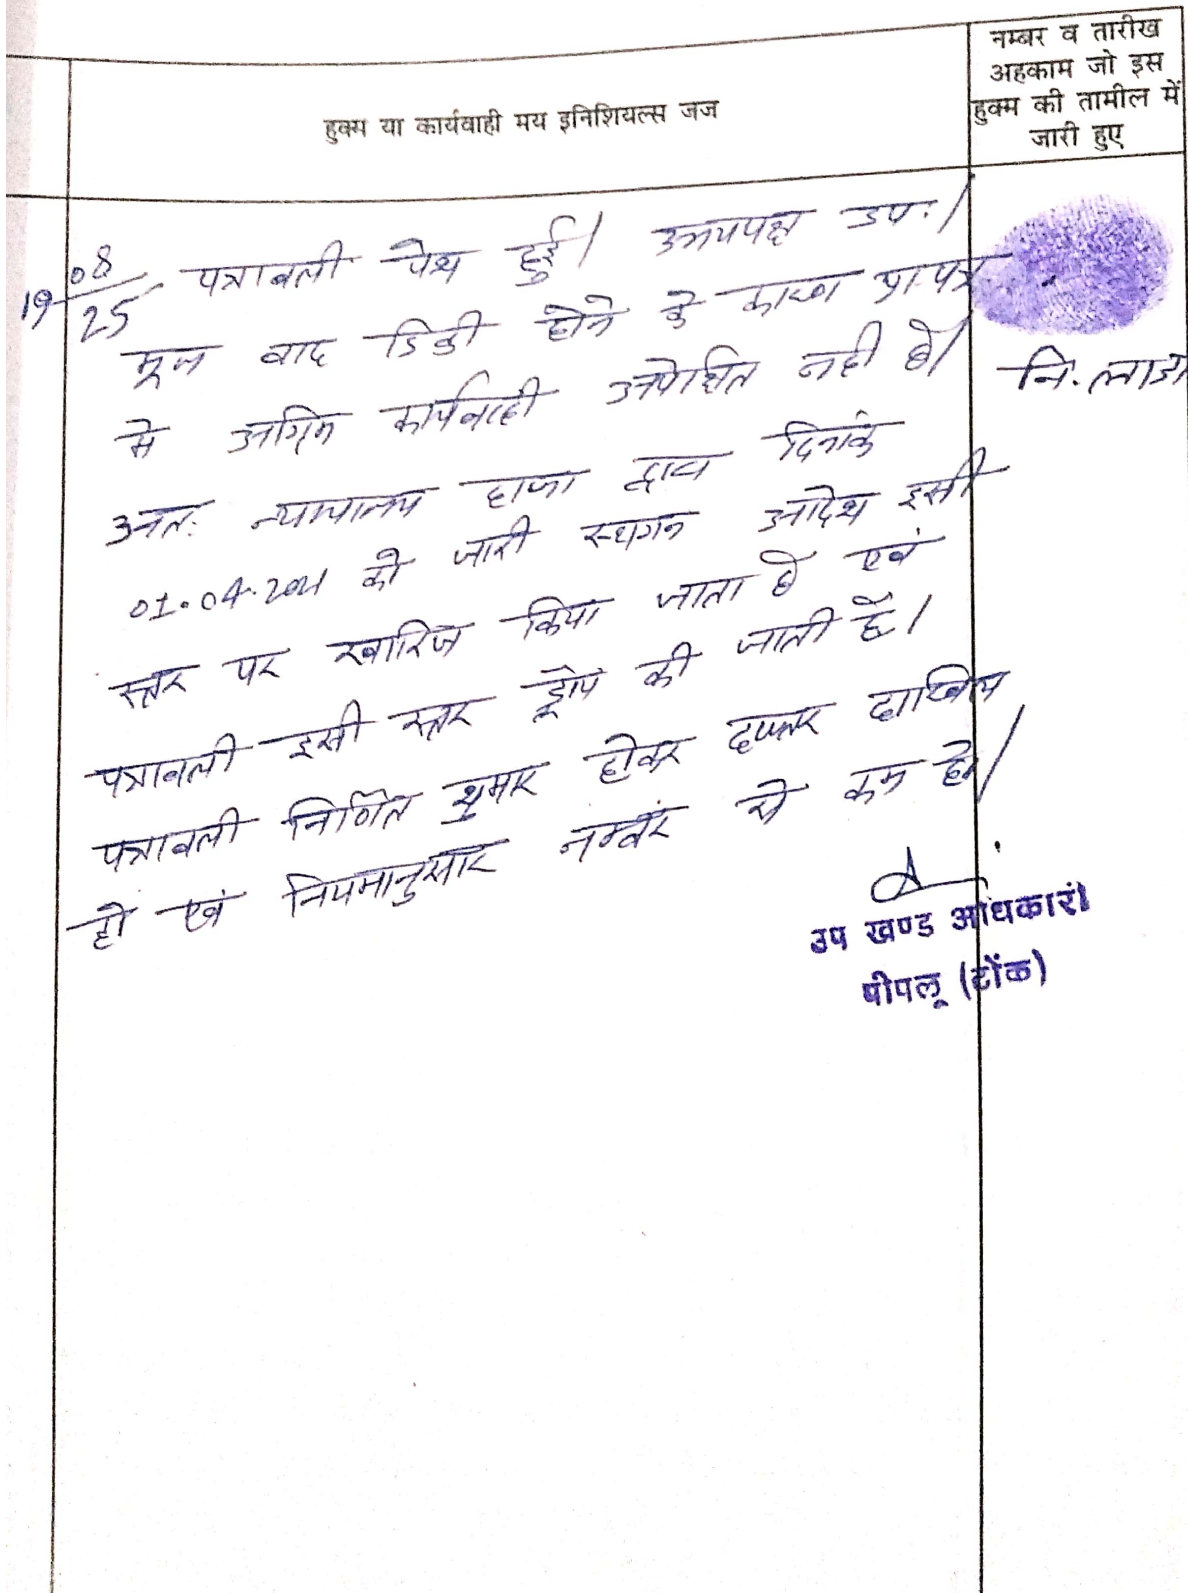 हुक्म या कार्यवाही मय इनिशियल्स जज
नम्बर व तारीख
अहकाम जो इस
हुक्म की तामील में
जारी हुए
19/08/25
पत्रावली पेश हुई। उभयपक्ष उप.।
मूल वाद डिक्री होने के कारण प्रा. पत्र
में अग्रिम कार्यवाही अपेक्षित नही है।
अतः न्यायालय हाजा द्वारा दिनांक
01.04.2021 को जारी स्थगन आदेश इसी
स्तर पर खारिज किया जाता है एवं
पत्रावली इसी स्तर ड्रोप की जाती है।
पत्रावली निर्णित शुमार होकर दफ्तर दाखिल
हो एवं नियमानुसार नम्बर से कम हो।
नि. लाडा
उप खण्ड अधिकारी
पीपलू (टोंक)